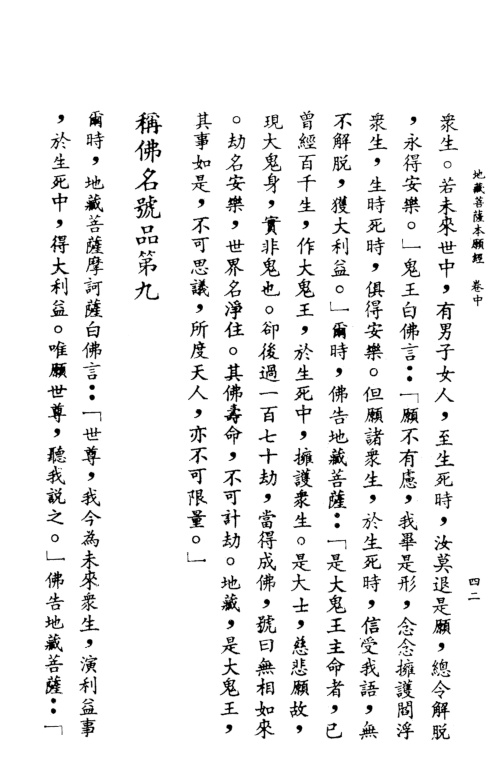 地藏菩薩本願經 卷中
四二
衆生。若未來世中，有男子女人，至生死時，汝莫退是願，總令解脫
，永得安樂。」鬼王白佛言：「願不有慮，我畢是形，念念擁護閻浮
衆生，生時死時，俱得安樂。但願諸衆生，於生死時，信受我語，無
不解脫，獲大利益。」爾時，佛告地藏菩薩：「是大鬼王主命者，已
曾經百千生，作大鬼王，於生死中，擁護衆生。是大士，慈悲願故，
現大鬼身，實非鬼也。卻後過一百七十劫，當得成佛，號曰無相如來
。劫名安樂，世界名淨住。其佛壽命，不可計劫。地藏，是大鬼王，
其事如是，不可思議，所度天人，亦不可限量。」
稱佛名號品第九
爾時，地藏菩薩摩訶薩白佛言：「世尊，我今為未來衆生，演利益事
，於生死中，得大利益。唯願世尊，聽我說之。」佛告地藏菩薩：「